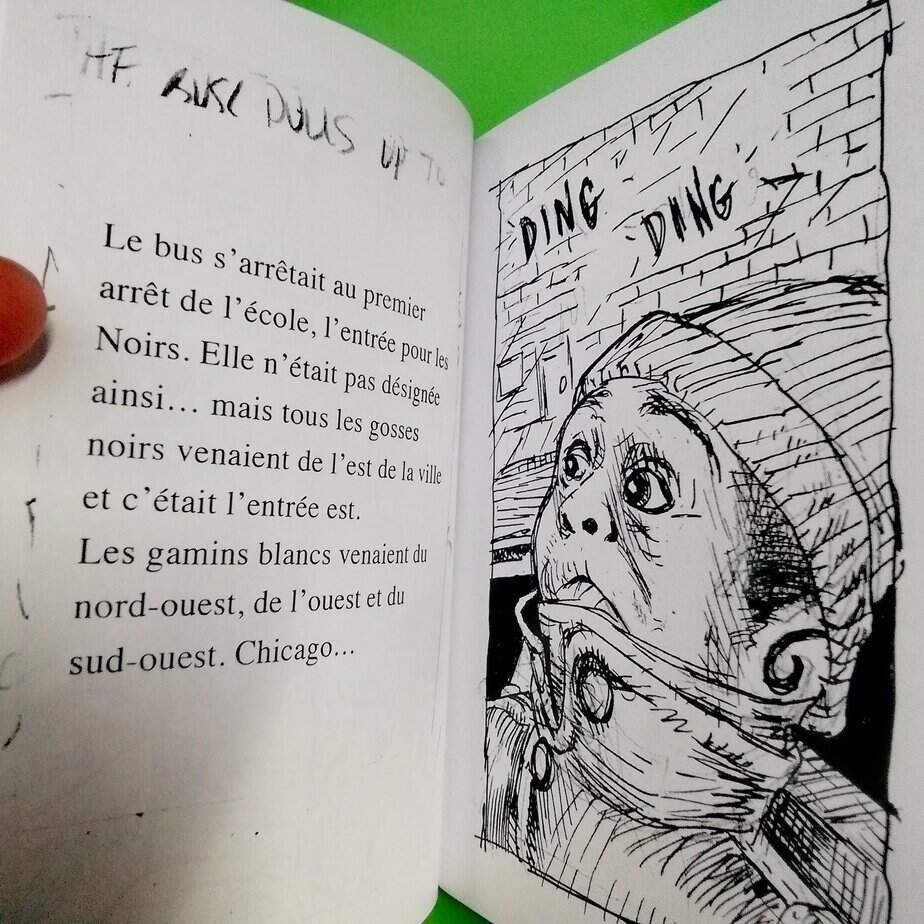 THE BUS PULLS UP TO
Le bus s'arrêtait au premier
arrêt de l'école, l'entrée pour les
Noirs. Elle n'était pas désignée
ainsi... mais tous les gosses
noirs venaient de l'est de la ville
et c'était l'entrée est.
Les gamins blancs venaient du
nord-ouest, de l'ouest et du
sud-ouest. Chicago...
DING DING